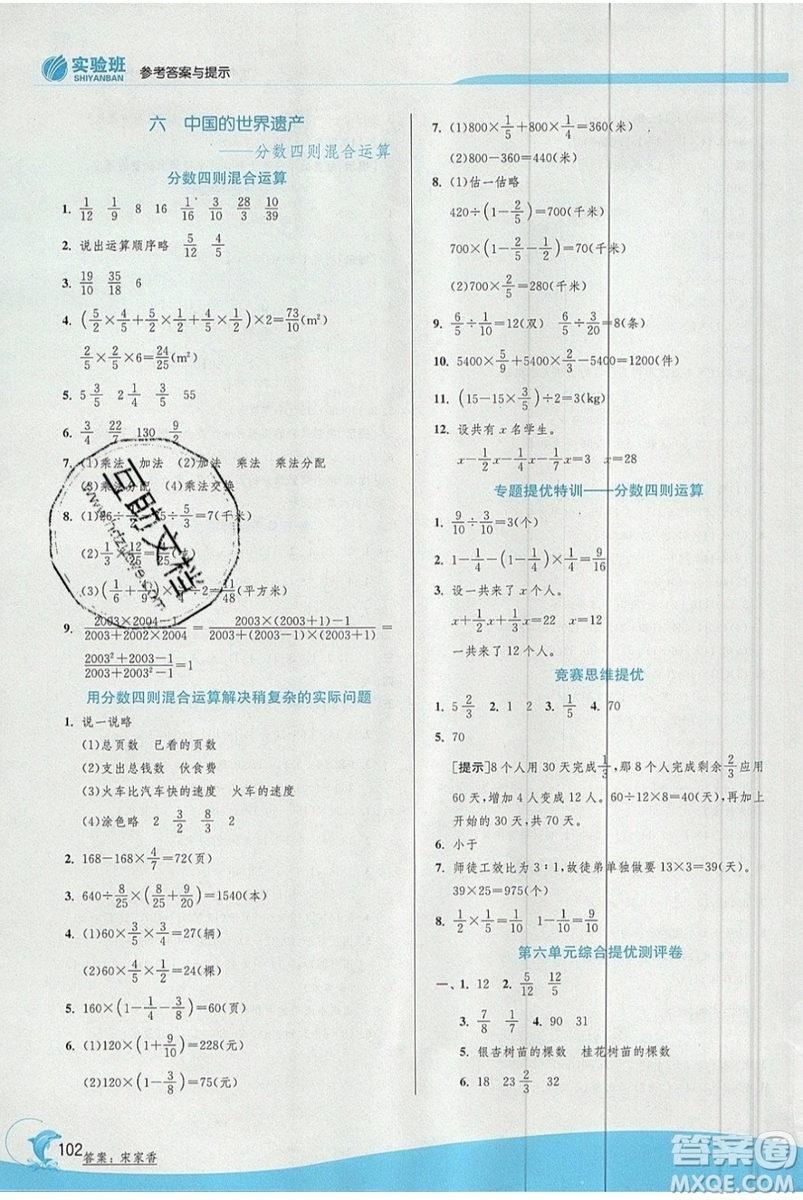 实验班
SHIYANBAN
参考答案与提示
六 中国的世界遗产
——分数四则混合运算
分数四则混合运算
1. 1/12 1/9 8 16 1/16 3/10 28/3 10/39
2. 说出运算顺序略 5/12 4/5
3. 19/10 35/18 6
4. (5/2×4/5+5/2×1/2+4/5×1/2)×2=73/10(m²)
2/5×2/5×6=24/25(m²)
5. 5 3/5 2 4/5 3/5 55
6. 3/4 22/7 130 9/2
7. (1)乘法 加法 (2)加法 乘法 乘法分配
(3)乘法分配 (4)乘法交换
8. (1)26÷ ÷5/3=7(千米)
(2)1/3×12/25
(3)(1/6+ ÷2=11/48(平方米)
9. 2003×2004-1/2003+2002×2004=2003×(2003+1)-1/2003+(2003-1)×(2003+1)=
2003²+2003-1/2003+2003²-1=1
用分数四则混合运算解决稍复杂的实际问题
1. 说一说略
(1)总页数 已看的页数
(2)支出总钱数 伙食费
(3)火车比汽车快的速度 火车的速度
(4)涂色略 2 3/2 8/3 2
2. 168-168×4/7=72(页)
3. 640÷8/25×(8/25+9/20)=1540(本)
4. (1)60×3/5×3/4=27(辆)
(2)60×2/5=24(棵)
5. 160×(1-1/4-3/8)=60(页)
6. (1)120×(1+9/10)=228(元)
(2)120×(1-3/8)=75(元)
7. (1)800×1/5+800×1/4=360(米)
(2)800-360=440(米)
8. (1)估一估略
420÷(1-2/5)=700(千米)
700×(1-2/5-1/2)=70(千米)
(2)700×2/5=280(千米)
9. 6/5÷1/10=12(双) 6/5÷3/20=8(条)
10. 5400×5/9+5400×2/3-5400=1200(件)
11. (15-15×3/5)÷2=3(kg)
12. 设共有x名学生。
x-1/2x-1/4x-1/7x=3 x=28
专题提优特训——分数四则运算
1. 9/10÷3/10=3(个)
2. 1-1/4-1/4×1/4-1/4×1/2=9/16
3. 设一共来了x个人。
x+1/2x+1/3x=22 x=12
竞赛思维提优
1. 5 2/3 2. 1 2 3. 1/4 4. 70
5. 70
[提示]8个人用30天完成1/3,那8个人完成剩余2/3应用
60天,增加4人变成12人。60÷12×8=40(天),再加上
开始的30天,共70天。
6. 小于
7. 师徒工效比为3∶1,故徒弟单独做要13×3=39(天)。
39×25=975(个)
8. 1/2×1/5=1/10 1-1/10=9/10
第六单元综合提优测评卷
一、1. 12 2. 5/12 12/5
3. 7/8 1/7 4. 90 31
5. 银杏树苗的棵数 桂花树苗的棵数
6. 18 23 2/3 2
102
答案:宋家香
互助文档
答案圈
MXQE.COM